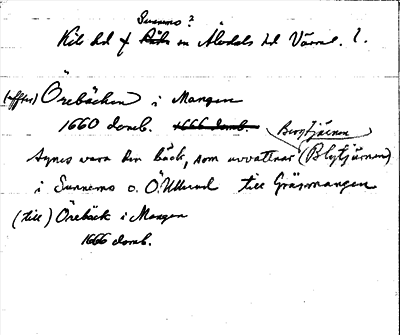 Sunnemo?
Kils hd f Kils en Älvdals hd Värml. ?.
(efter) Örebäcken i Mangen
1660 domb. 1666 domb.
Bergtjärnen
Synes vara den bäck, som avvattnar (Blytjärnen)
i Sunnemo o. Ö. Ullerud till Gräsmangen
(till) Örebäck i Mangen
1666 domb.